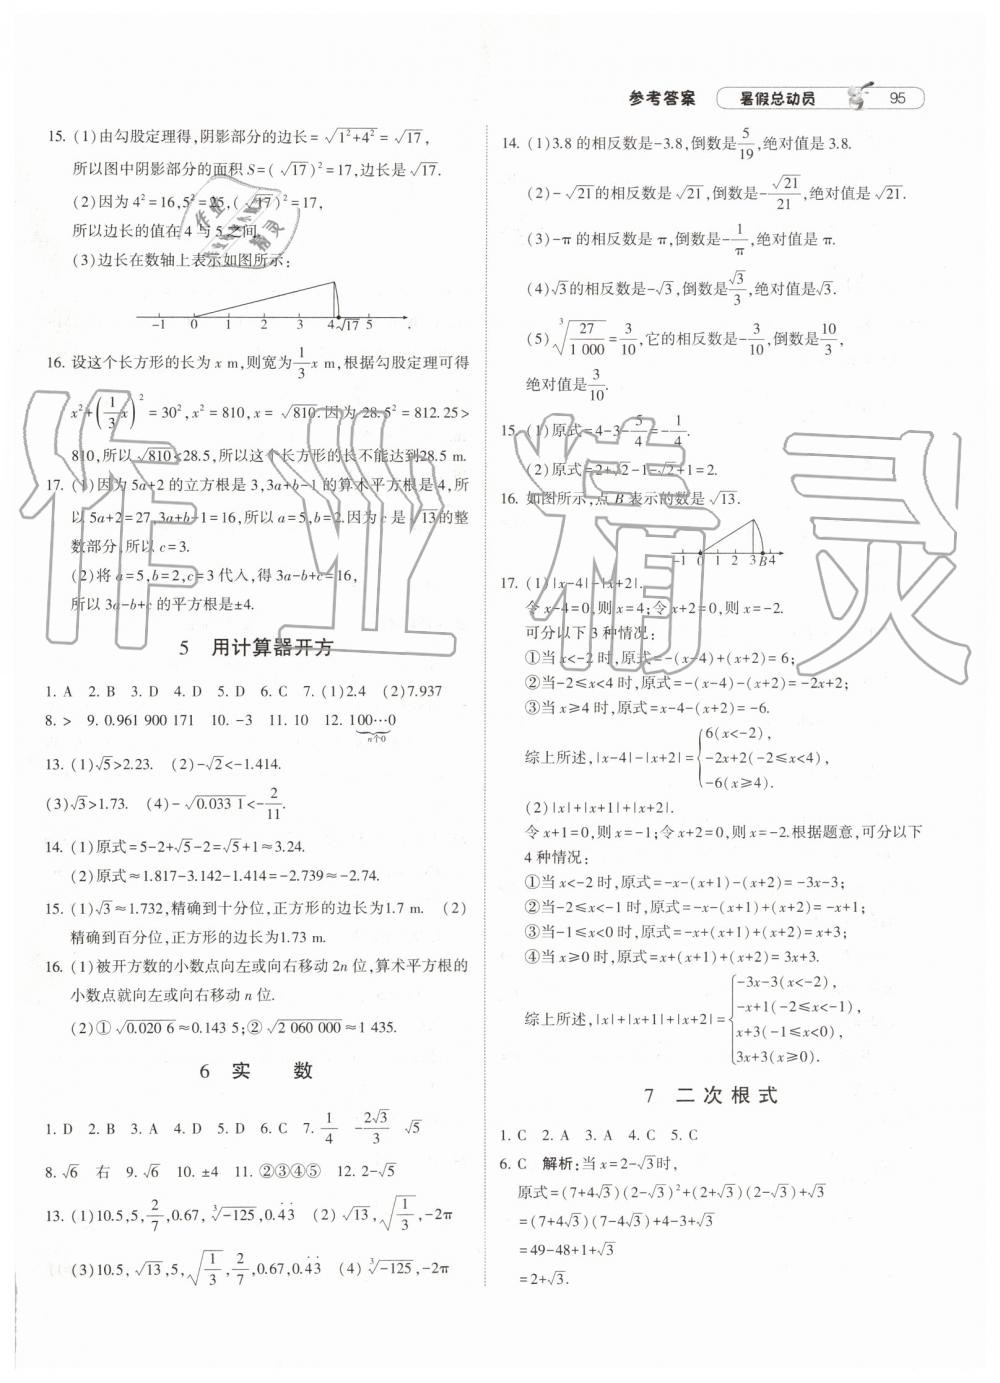 参考答案 暑假总动员 95
15. (1)由勾股定理得,阴影部分的边长=√(1²+4²)=√17,
所以图中阴影部分的面积 S=(√17)²=17,边长是√17.
(2)因为4²=16,5²=25,(√17)²=17,
所以边长的值在4与5之间.
(3)边长在数轴上表示如图所示:
-1 0 1 2 3 4 √17 5 .
16. 设这个长方形的长为 x m,则宽为1/3x m,根据勾股定理可得
x²+(1/3x)²=30²,x²=810,x=√810.因为28.5²=812.25>
810,所以√810<28.5,所以这个长方形的长不能达到28.5 m.
17. (1)因为5a+2的立方根是3,3a+b-1的算术平方根是4,所
以5a+2=27,3a+b-1=16,所以a=5,b=2.因为c是√13的整
数部分,所以c=3.
(2)将a=5,b=2,c=3代入,得3a-b+c=16,
所以3a-b+c的平方根是±4.
5 用计算器开方
1. A 2. B 3. D 4. D 5. D 6. C 7. (1)2.4 (2)7.937
8. > 9. 0.961 900 171 10. -3 11. 10 12. 100⋯0
n个0
13. (1)√5>2.23. (2)-√2<-1.414.
(3)√3>1.73. (4)-√0.033 1<-2/11.
14. (1)原式=5-2+√5-2=√5+1≈3.24.
(2)原式≈1.817-3.142-1.414=-2.739≈-2.74.
15. (1)√3≈1.732,精确到十分位,正方形的边长为1.7 m. (2)
精确到百分位,正方形的边长为1.73 m.
16. (1)被开方数的小数点向左或向右移动2n位,算术平方根的
小数点就向左或向右移动n位.
(2)①√0.020 6≈0.143 5;②√2 060 000≈1 435.
6 实 数
1. D 2. B 3. A 4. D 5. D 6. C 7. 1/4 -2√3/3 √5
8. √6 右 9. √6 10. ±4 11. ②③④⑤ 12. 2-√5
13. (1)10.5,5,2/7,0.67,∛-125,0.4̇3̇ (2)√13,√(1/3),-2π
(3)10.5,√13,5,√(1/3),2/7,0.67,0.4̇3̇ (4)∛-125,-2π
14. (1)3.8的相反数是-3.8,倒数是5/19,绝对值是3.8.
(2)-√21的相反数是√21,倒数是-√21/21,绝对值是√21.
(3)-π的相反数是π,倒数是-1/π,绝对值是π.
(4)√3的相反数是-√3,倒数是√3/3,绝对值是√3.
(5)∛(27/1 000)=3/10,它的相反数是-3/10,倒数是10/3,
绝对值是3/10.
15. (1)原式=4-3-5/4=-1/4.
(2)原式=2+√2-1-√2+1=2.
16. 如图所示,点B表示的数是√13.
-1 0 1 2 3 B 4
17. (1)|x-4|-|x+2|.
令x-4=0,则x=4;令x+2=0,则x=-2.
可分以下3种情况:
①当x<-2时,原式=-(x-4)+(x+2)=6;
②当-2≤x<4时,原式=-(x-4)-(x+2)=-2x+2;
③当x≥4时,原式=x-4-(x+2)=-6.
综上所述,|x-4|-|x+2|={6(x<-2),
-2x+2(-2≤x<4),
-6(x≥4).
(2)|x|+|x+1|+|x+2|.
令x+1=0,则x=-1;令x+2=0,则x=-2.根据题意,可分以下
4种情况:
①当x<-2时,原式=-x-(x+1)-(x+2)=-3x-3;
②当-2≤x<-1时,原式=-x-(x+1)+(x+2)=-x+1;
③当-1≤x<0时,原式=-x+(x+1)+(x+2)=x+3;
④当x≥0时,原式=x+(x+1)+(x+2)=3x+3.
综上所述,|x|+|x+1|+|x+2|={-3x-3(x<-2),
-x+1(-2≤x<-1),
x+3(-1≤x<0),
3x+3(x≥0).
7 二次根式
1. C 2. A 3. A 4. C 5. C
6. C 解析:当x=2-√3时,
原式=(7+4√3)(2-√3)²+(2+√3)(2-√3)+√3
=(7+4√3)(7-4√3)+4-3+√3
=49-48+1+√3
=2+√3.
作业精灵
作业精灵